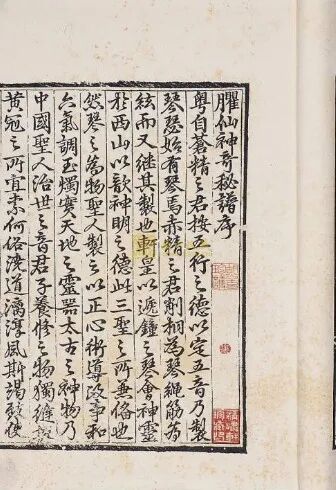 臞仙神奇秘譜序
粵自蒼精之君按五行之德以定五音乃製
琴瑟始有琴焉赤精之君削桐為琴繩為
絃而又継其製也軒皇以遞鐘之琴會神靈
於西山以歆神明之德此三聖之所無俻也
然琴之為物聖人製之以正心術導政事和
六氣調玉燭實天地之靈器太古之神物乃
中國聖人治世之音君子養修之物獨縫掖
黃冠之所宜柰何俗澆道漓淳風斯竭致使